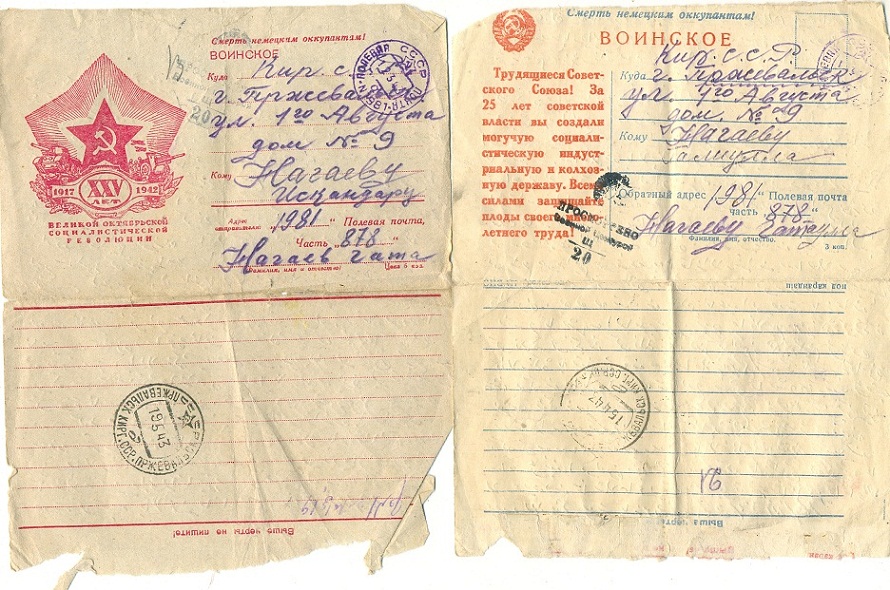 Смерть немецким оккупантам!
ВОИНСКОЕ
Куда Кир. с. с.
г. Пржевальск
ул. 1го Августа
дом № 9
Кому Нагаеву
Искандару
Адрес отправителя: 1981 " Полевая почта,
Часть 878 "
Нагаев Гата
Фамилия, имя и отчество
Цена 6 коп.
1917 XXV ЛЕТ 1942
ВЕЛИКОЙ ОКТЯБРЬСКОЙ
СОЦИАЛИСТИЧЕСКОЙ
РЕВОЛЮЦИИ
СССР ПОЛЕВАЯ ПОЧТА
20
ПРЖЕВАЛЬСК КИРГ. ССР
19 5 43
Выше черты не пишите!
Смерть немецким оккупантам!
ВОИНСКОЕ
Трудящиеся Совет-
ского Союза! За
25 лет советской
власти вы создали
могучую социали-
стическую индуст-
риальную и колхоз-
ную державу. Всеми
силами защищайте
плоды своего
летнего труда!
Кир. С. С. Р.
Куда г. Пржевальск
ул. 1го Августа
дом № 9
Кому Нагаеву
Обратный адрес 1981 " Полевая почта
часть 878 "
Нагаеву Гатаулла
Фамилия, имя, отчество.
3 коп.
ПРОСМОТРЕНО
Военной Цензурой
20
КИРГ. ССР
Выше черты